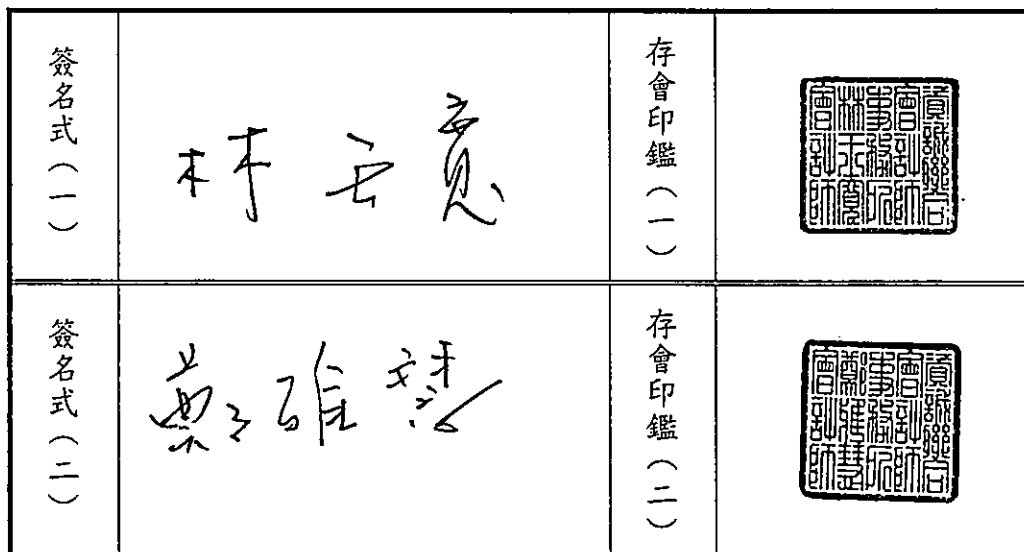 簽名式(一)
林玉寬
存會印鑑(一)
資誠聯合
會計師
事務所
林玉寬
會計師
簽名式(二)
鄭雅慧
存會印鑑(二)
資誠聯合
會計師
事務所
鄭雅慧
會計師